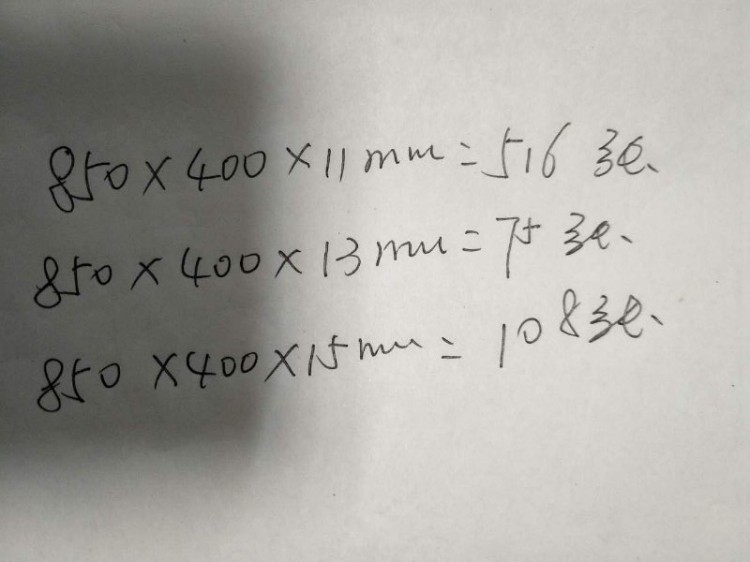 850×400×11mm=516张、
850×400×13mm=75张、
850×400×15mm=108张、